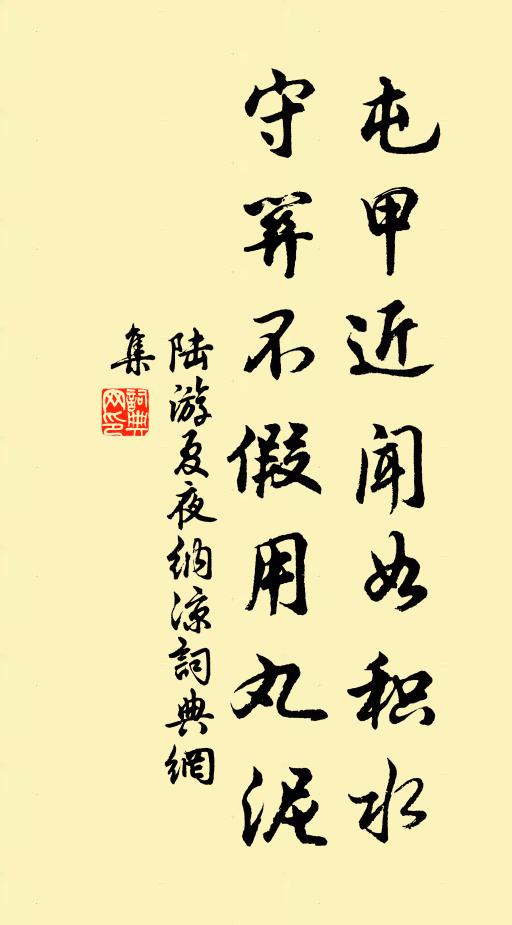 屯甲近闻如积水
守关不假用丸泥
陆游夏夜纳凉词典網
集
詞典网印